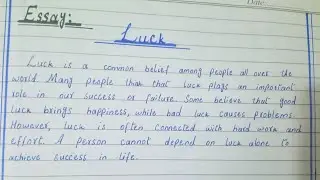 Date:
Essay:
Luck
Luck is a common belief among people all over the
world Many people think that luck plays an important
role in our success or failure. Some believe that good
luck brings happiness, while bad luck causes problems.
However, luck is often connected with hard work and
effort. A person cannot depend on luck alone to
achieve success in life.